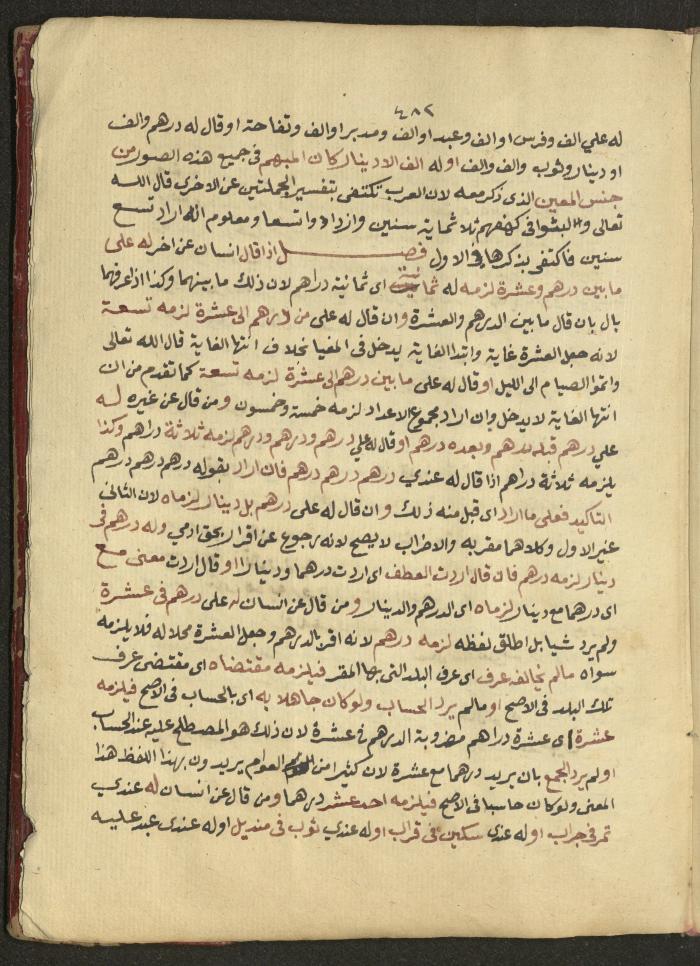 ٤٨٢
له علي الف وفرس او الف وعبد او الف ومدبر او الف وتفاحة او قال له درهم والف
او دينار وثوب والف والف او له الف الا دينار كان المبهم في جميع هذه الصور من
جنس المعين الذي ذكر معه لان العرب تكتفى بتفسير الجملتين عن الاخرى قال الله
تعالى ولبثوا في كهفهم ثلاثماية سنين وازدادوا تسعا ومعلوم انه اراد تسع
سنين فاكتفى بذكرها في الاول فصل اذا قال انسان عن اخر له على
ما بين درهم وعشرة لزمه له ثمانية اى ثمانية دراهم لان ذلك ما بينهما وكذا اذ عرفهما
بال بان قال ما بين الدرهم والعشرة وان قال له على من درهم الى عشرة لزمه تسعة
لانه جعل العشرة غاية وابتدا الغاية يدخل في المغيا بخلاف انتها الغاية قال الله تعالى
واتموا الصيام الى الليل او قال له على ما بين درهم الى عشرة لزمه تسعة كما تقدم من ان
انتها الغاية لا يدخل وان اراد مجموع الاعداد لزمه خمسة وخمسون ومن قال عن غيره له
علي درهم قبله درهم وبعده درهم او قال له علي درهم ودرهم ودرهم لزمه ثلاثة دراهم وكذا
يلزمه ثلاثة دراهم اذا قال له عندي درهم درهم درهم فان اراد بقوله درهم درهم درهم
التاكيد فعلى ما اراد اى قبل منه ذلك وان قال له على درهم بل دينار لزماه لان الثانى
غير الاول وكلاهما مقر به والاضراب لا يصح لانه رجوع عن اقرار بحق ادمي وله درهم في
دينار لزمه درهم فان قال اردت العطف اى اردت درهما ودينارا او قال اردت معنى مع
اى درهما مع دينار لزماه اى الدرهم والدينار ومن قال عن انسان له على درهم في عشرة
ولم يرد شيا بل اطلق لفظه لزمه درهم لانه اقر بالدرهم وجعل العشرة محلا له فلا يلزمه
سواه مالم يخالفه عرف اى عرف البلد التى بها المقر فيلزمه مقتضاه اى مقتضى عرف
تلك البلد في الاصح او مالم يرد الحساب ولو كان جاهلا به اى بالحساب في الاصح فيلزمه
عشرة اى عشرة دراهم مضروبة الدرهم في عشرة لان ذلك هو المصطلح عليه عند الحساب
او لم يرد الجمع بان يريد درهما مع عشرة لان كثيرا من العوام يريدون بهذا اللفظ هذا
المعنى ولو كان حاسبا في الاصح فيلزمه احد عشر درهما ومن قال عن انسان له عندي
تمر في جراب او له عندى سكين في قراب او له عندي ثوب في منديل او له عندى عبد عليه